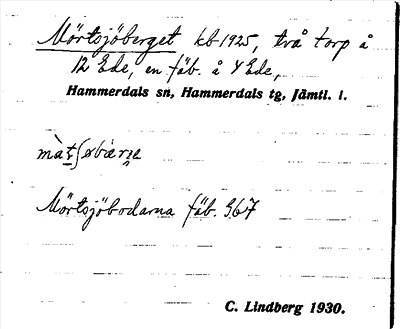 Mörtsjöberget kb 1925, två torp å
12 Ede, en fäb. å 4 Ede,
Hammerdals sn, Hammerdals tg, Jämtl. l.
Mörtsjöbodarna fäb. 367
C. Lindberg 1930.